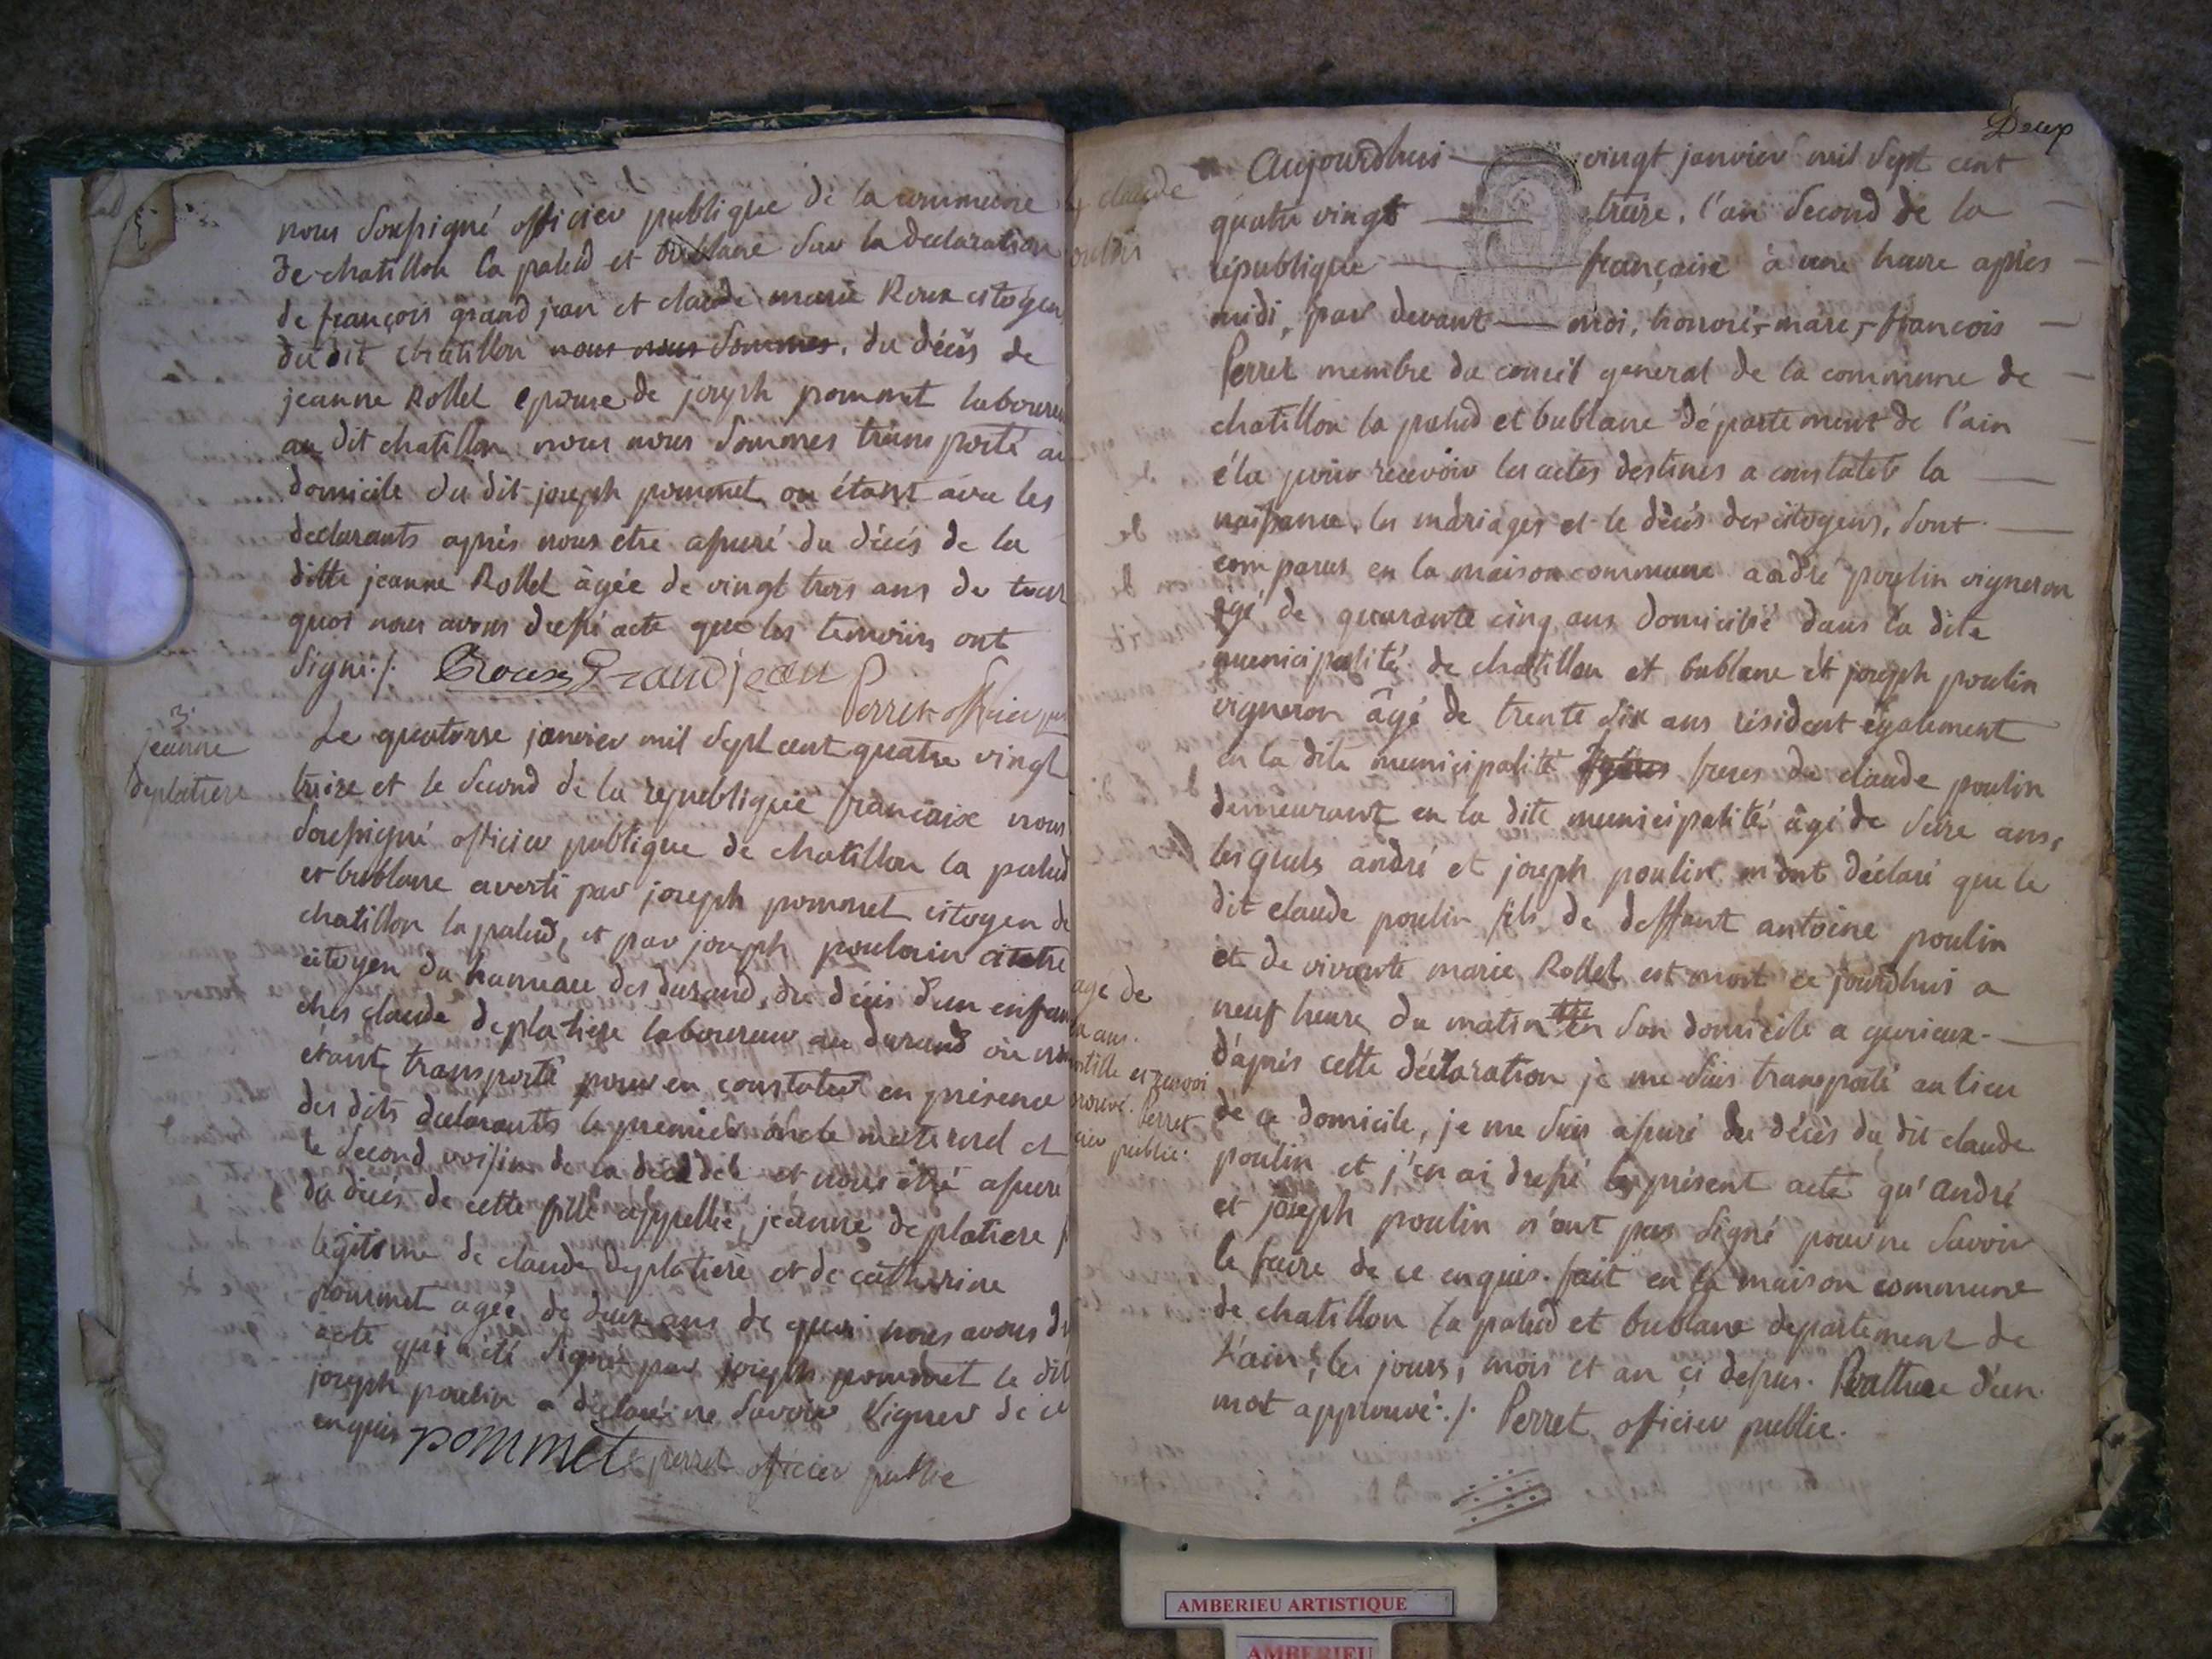 nous soussigné officier publique de la commune
de chatillon la palud et bublane sur la declaration
de françois grand jean et claude marie Roux citoyen
du dit chatillon nous nous sommes. du décès de
jeanne Rollet epouse de joseph pommet laboureu
au dit chatillon nous nous sommes transporté au
domicile du dit joseph pommet ou étant avec les
declarants après nous etre assuré du décés de la
ditte jeanne Rollet âgée de vingt trois ans de tout
quoi nous avons dressé acte que les temoins ont
signé ./. Roux Grandjean
Perret officier pu
3.
jeanne
deplatiere
Le quatorse janvier mil sept cent quatre vingt
treize et le second de la republique française nous
soussigné officier publique de chatillon la palud
et bublane averti par joseph pommet citoyen de
chatillon la palud, et par joseph poulain
citoyen du hameau des durand, du décés d'un enfan
ches claude deplatiere laboureur au durand ou
étant transporté pour en constater en présence
des dits declarants le premier oncle maternel et
le second voisin de la et nous etre assuré
du décés de cette fille appellée, jeanne deplatiere
legitime de claude deplatière et de catherine
pommet agée de deux ans de quoi nous avons
acte qui a été signé par joseph pommet le dit
joseph poulin a déclaré ne savoir signer de ce
enquis pommet perret officier public
Deux
4 claude
poulin
Aujourdhui vingt janvier mil sept cent
quatre vingt treize, l'an second de la
république française à une heure après
midi, par devant moi, honoré, marc, françois
Perret membre du conseil general de la commune de
chatillon la palud et bublane département de l'ain
élu pour recevoir les actes destines a constater la
naissance, les mariages et le décès des citoyens, sont
comparus en la maison commune andré poulin vigneron
âgé de quarante cinq ans domicilié dans la dite
municipalité de chatillon et bublane et joseph poulin
vigneron âgé de trente six ans résident également
en la dite municipalité freres de claude poulin
demeurant en la dite municipalité âgé de seize ans,
lesquels andré et joseph poulin m'ont déclaré que le
dit claude poulin fils de deffunt antoine poulin
et de vivante marie Rollet est mort ce jourdhui a
neuf heure du matin en son domicile a gevrieux.
d'après cette déclaration je me suis transporté au lieu
de ce domicile, je me suis assuré du décès du dit claude
poulin et j'en ai dressé le présent acte qu'andré
et joseph poulin n'ont pas signé pour ne savoir
le faire de ce enquis. fait en la maison commune
de chatillon la palud et bublane departement de
l'ain, les jours, mois et an çi dessus. Rature d'un
mot approuvé ./. Perret officier public.
agé de
ans.
et renvoi
Perret
public.
AMBERIEU ARTISTIQUE
AMBERIEU